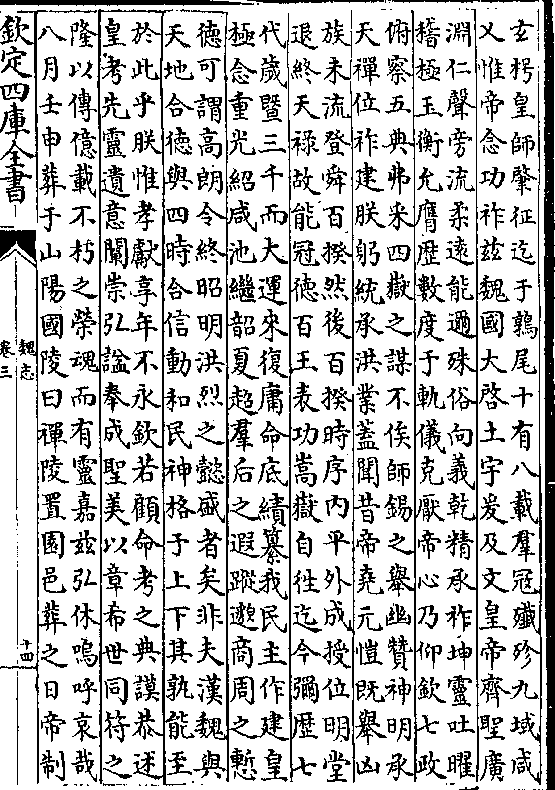 玄枵皇師肇征迄于鶉尾十有八載羣冦殲殄九域咸
乂惟帝念功祚兹魏國大啓土宇爰及文皇帝齊聖廣
淵仁聲旁流柔遠能邇殊俗向義乾精承祚坤靈吐曜
稽極玉衡允膺歴數度于軌儀克厭帝心乃仰欽七政
俯察五典弗采四嶽之謀不俟師錫之舉幽贊神明承
天禪位祚建朕躬統承洪業蓋聞昔帝堯元愷既舉凶
族未流登舜百揆然後百揆時序内平外成授位明堂
退終天祿故能冠德百王表功嵩嶽自徃迄今彌歴七
代歲暨三千而大運來復庸命底績纂我民主作建皇
極念重光紹咸池繼韶夏超羣后之遐蹤邈商周之慙
德可謂高朗令終昭明洪烈之懿盛者矣非夫漢魏與
天地合德與四時合信動和民神格于上下其孰能至
於此乎朕惟孝獻享年不永欽若顧命考之典謨恭述
皇考先靈遺意闡崇弘諡奉成聖美以章希世同符之
隆以傳億載不朽之榮魂而有靈嘉兹弘休嗚呼哀哉
八月壬申葬于山陽國陵曰禪陵置園邑葬之日帝制
欽定四庫全書
魏志
卷三
十四